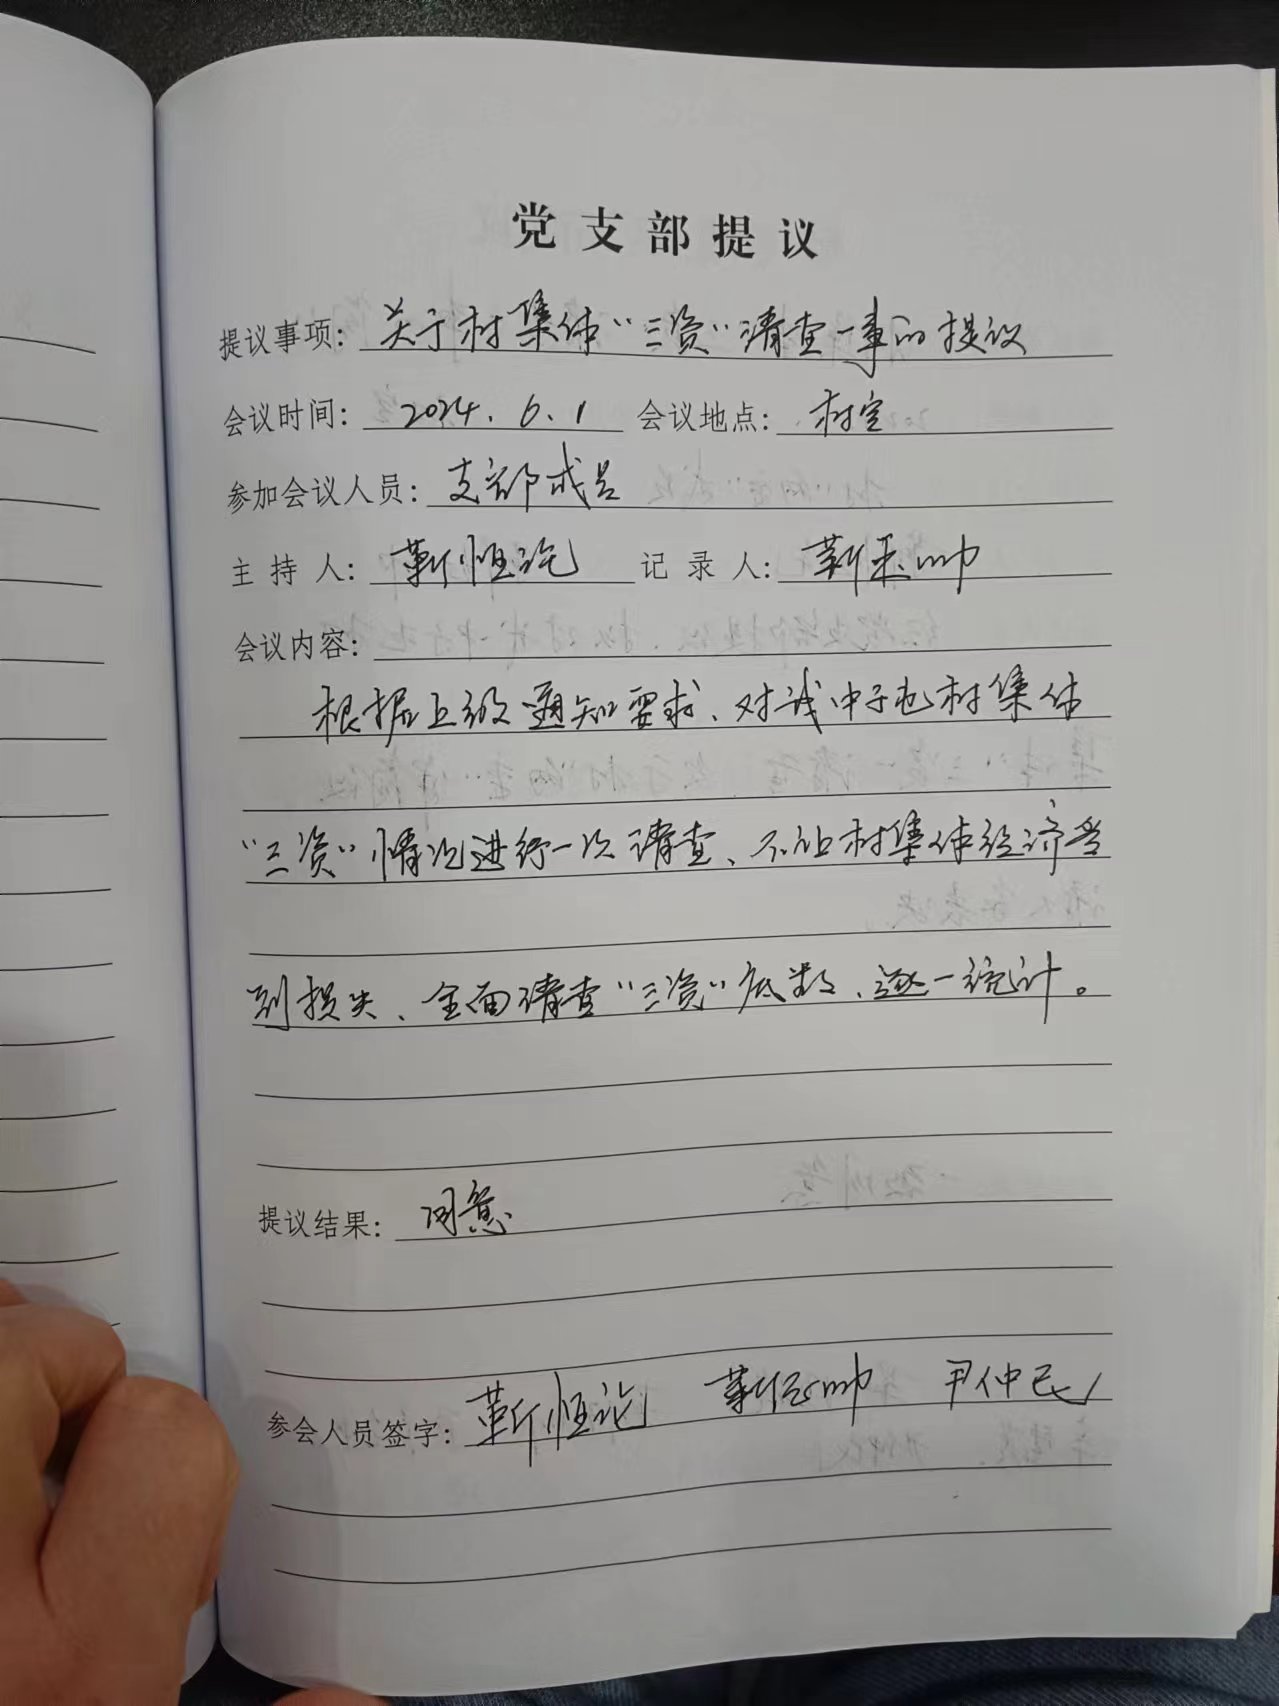 党支部提议
提议事项：关于村集体“三资”清查一事的提议
会议时间：2024.6.1 会议地点：村室
参加会议人员：支部成员
主持人：靳恒论 记录人：靳帅
会议内容：
根据上级通知要求、对我中于屯村集体
“三资”情况进行一次清查、不让村集体经济受
到损失、全面清查“三资”底数、逐一统计。
提议结果：同意
参会人员签字：靳恒论 靳帅 尹仲民